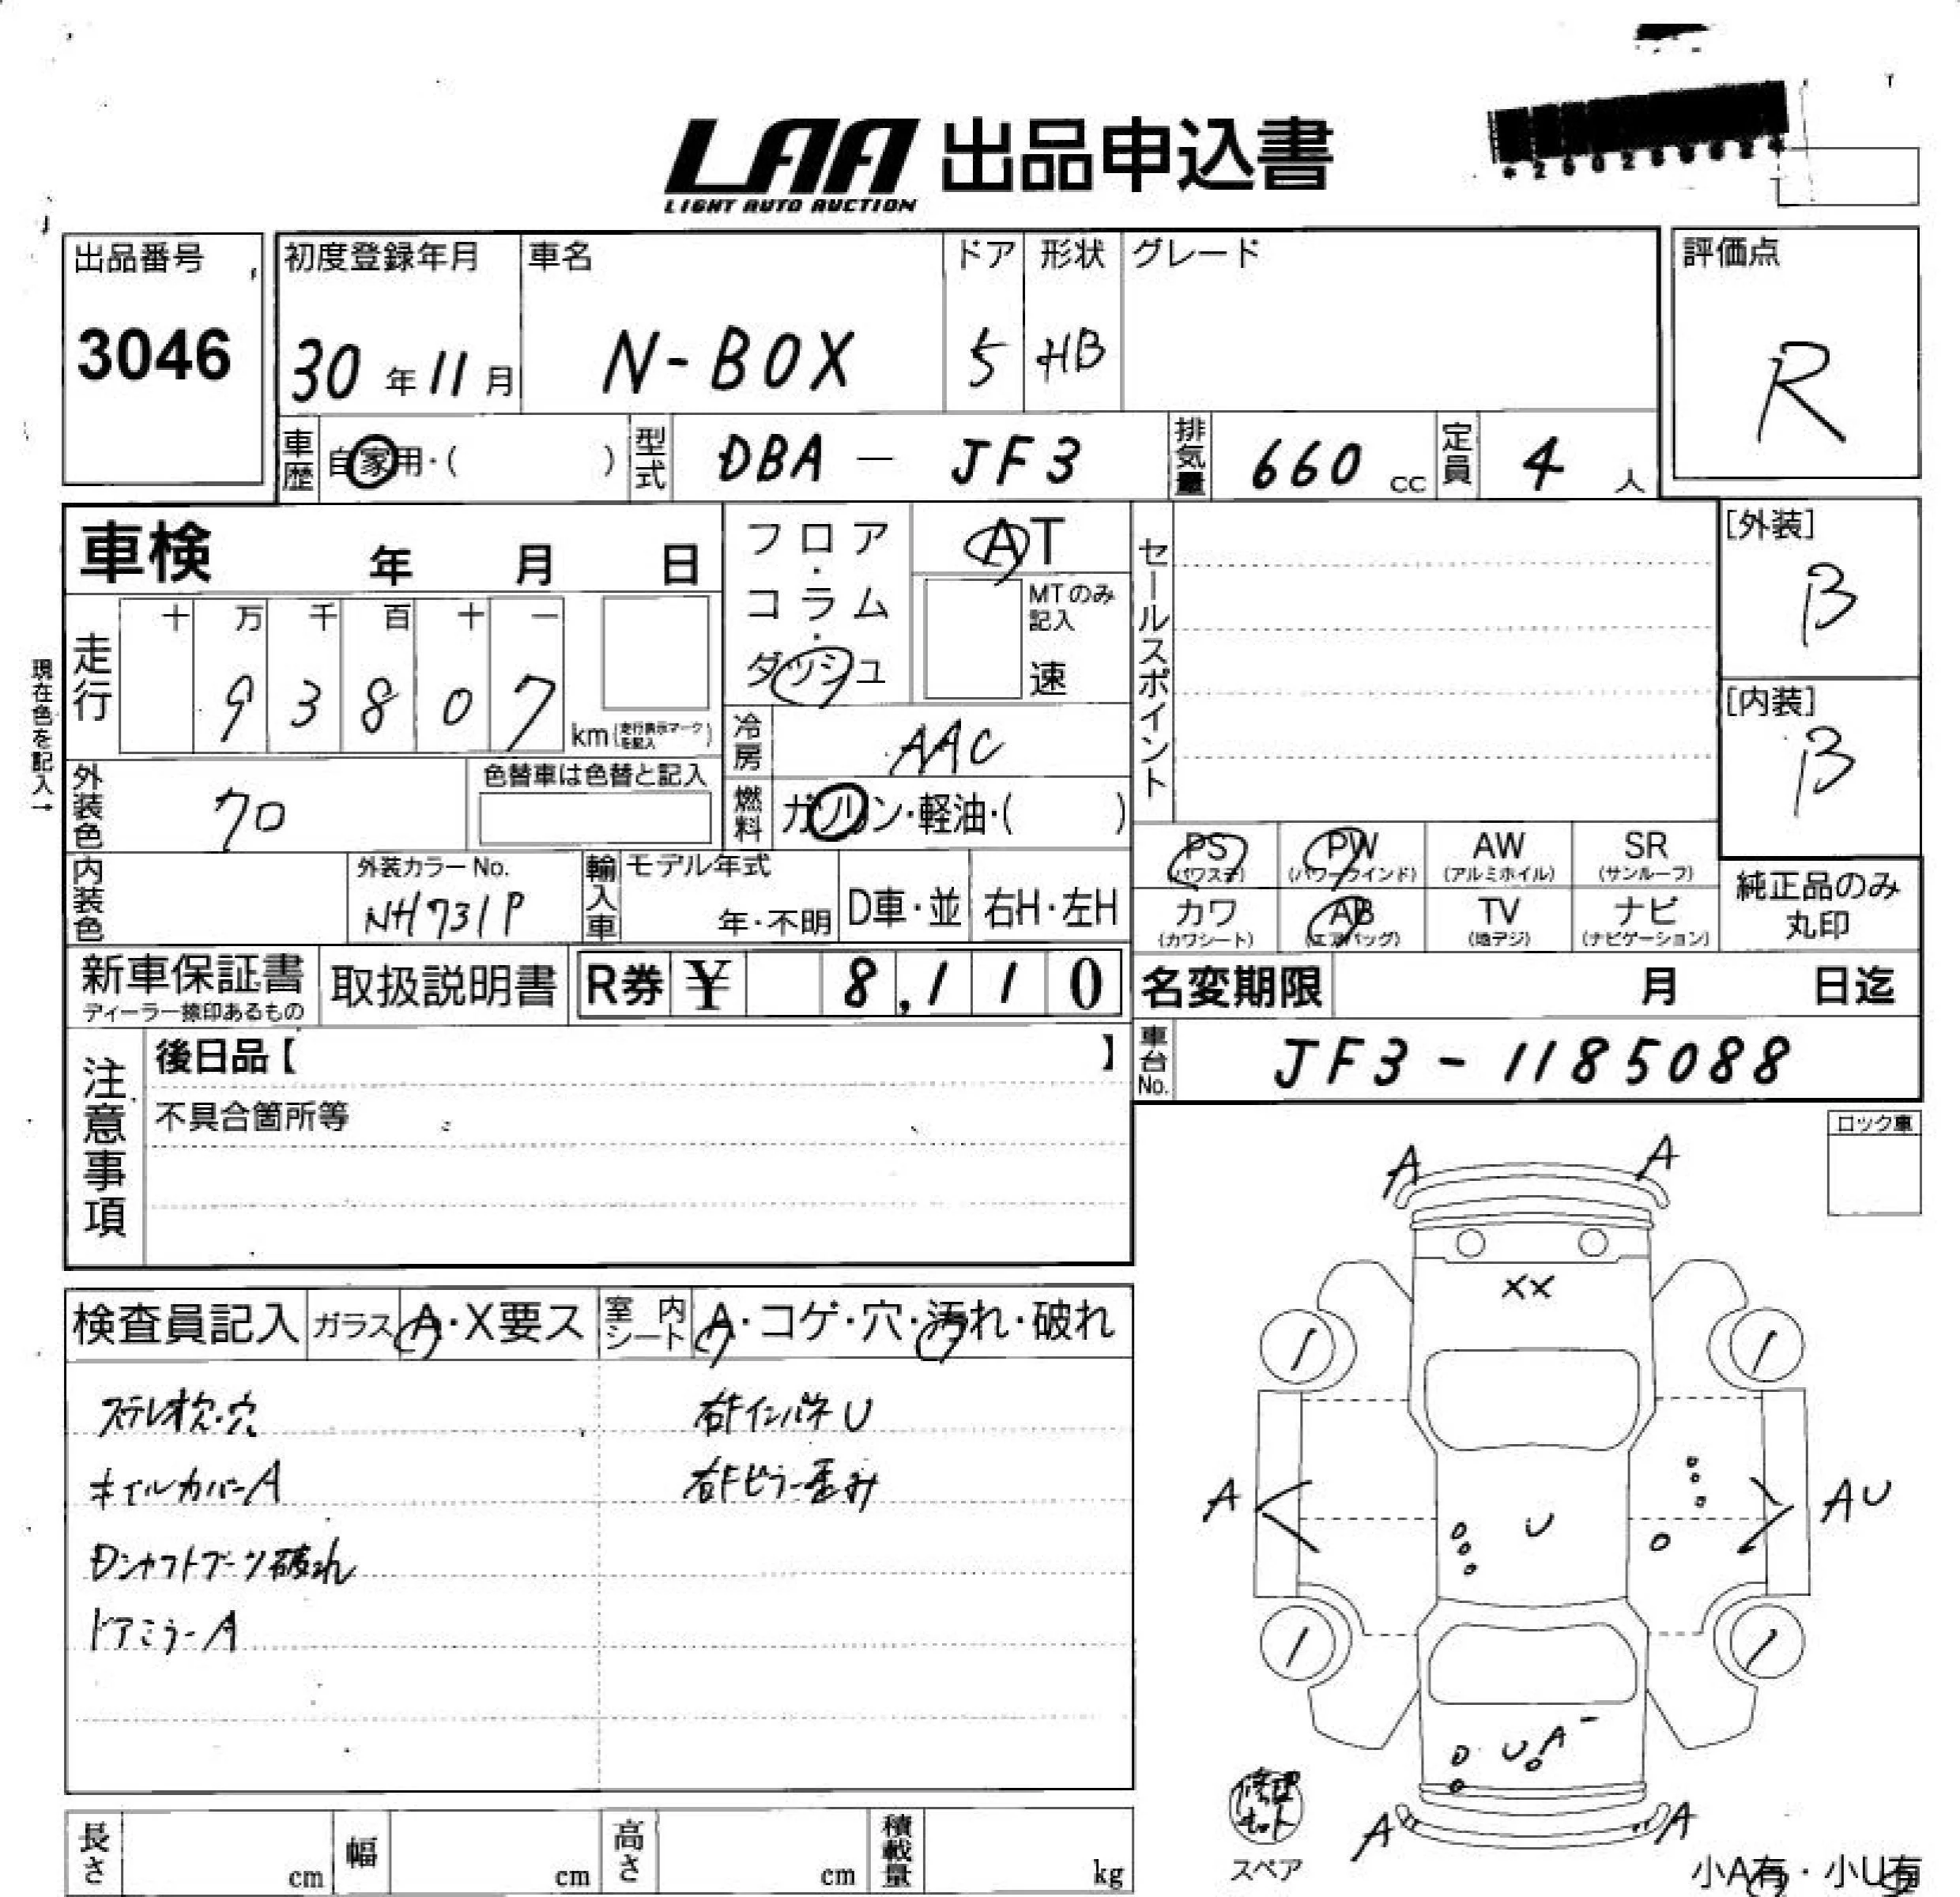 LAA 出品申込書
LIGHT AUTO AUCTION
出品番号
3046
初度登録年月
30年11月
車名
N-BOX
ドア
5
形状
HB
グレード
評価点
R
車歴 自家用・( )
型式 DBA - JF3
排気量 660 cc
定員 4 人
車検 年 月 日
フロア・コラム・ダッシュ
AT
MTのみ記入
速
セールスポイント
[外装]
B
[内装]
B
現在色を記入→
走行
十 万 千 百 十 一
9 3 8 0 7
km (走行表示マークを記入)
冷房 AAC
外装色 クロ
色替車は色替と記入
燃料 ガソリン・軽油・( )
内装色
外装カラーNo.
NH731P
輸入車
モデル年式
年・不明
D車・並
右H・左H
PS (パワステ)
PW (パワーウインド)
AW (アルミホイル)
SR (サンルーフ)
カワ (カワシート)
AB (エアバッグ)
TV (地デジ)
ナビ (ナビゲーション)
純正品のみ
丸印
新車保証書
ディーラー捺印あるもの
取扱説明書
R券 ¥ 8,110
名変期限 月 日迄
車台No. JF3-1185088
注意事項
後日品【 】
不具合箇所等
ロック車
検査員記入
ガラス A・X要ス
室内シート A・コゲ・穴・汚れ・破れ
ステレオ欠・穴
ホイルカバーA
Dシャフトブーツ破れ
ドアミラーA
右Fインパネ U
右Fピラー歪み
A A
XX
A U AU
U A
A A
修理キット
スペア
小A有・小U有
長さ cm
幅 cm
高さ cm
積載量 kg